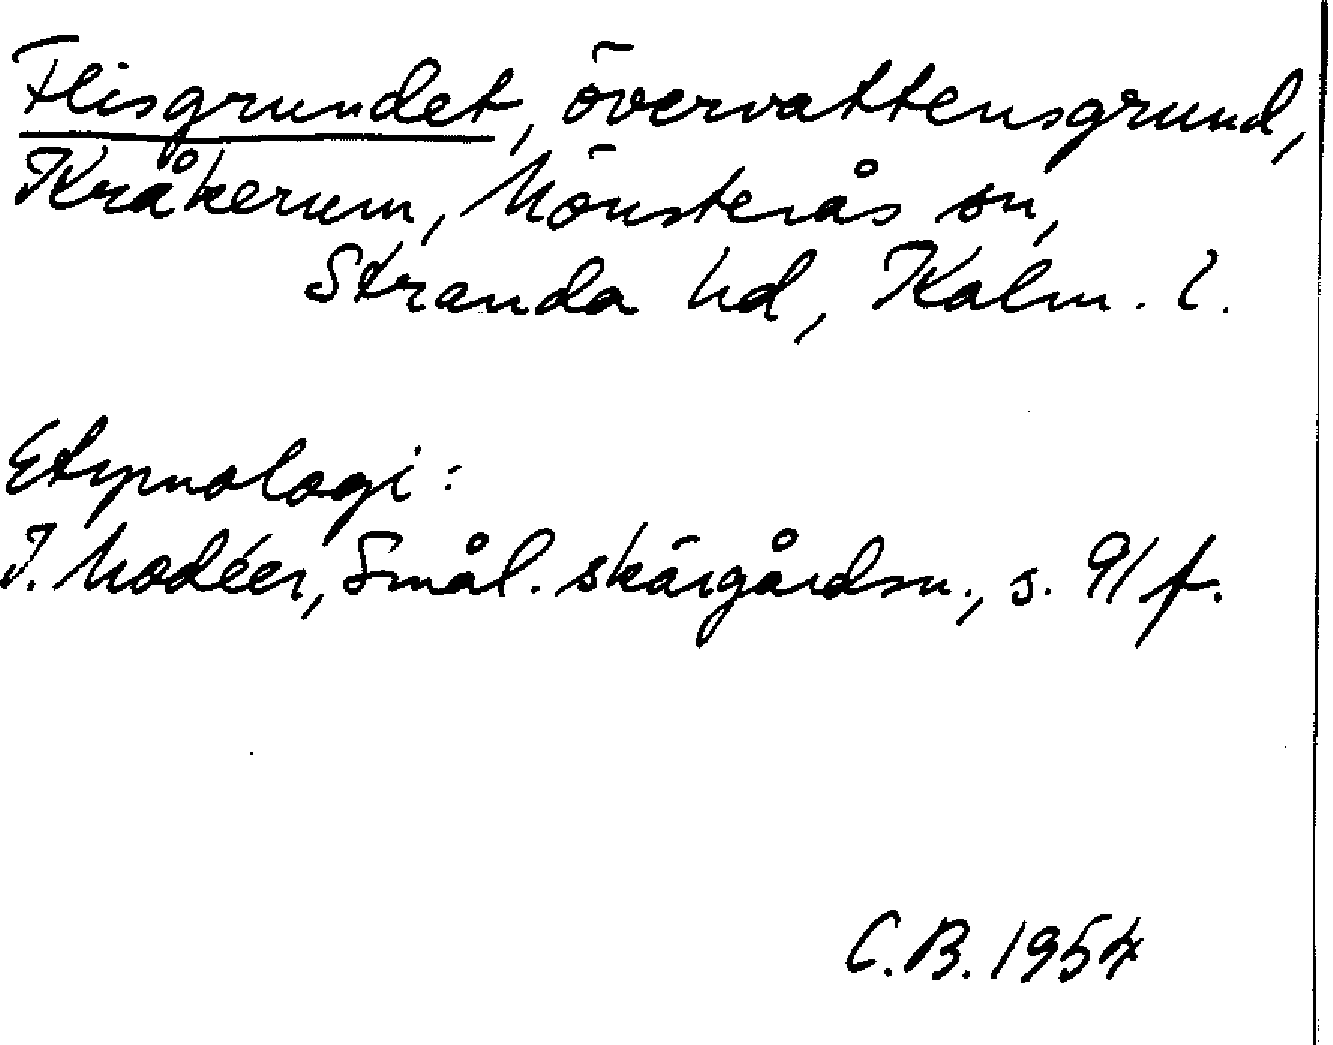 Flisgrundet, övervattensgrund,
Kråkerum, Mönsterås sn,
Stranda hd, Kalm. l.
Etymologi:
I. Modéer, Smål. skärgårdsn., s. 91 f.
C.B. 1954